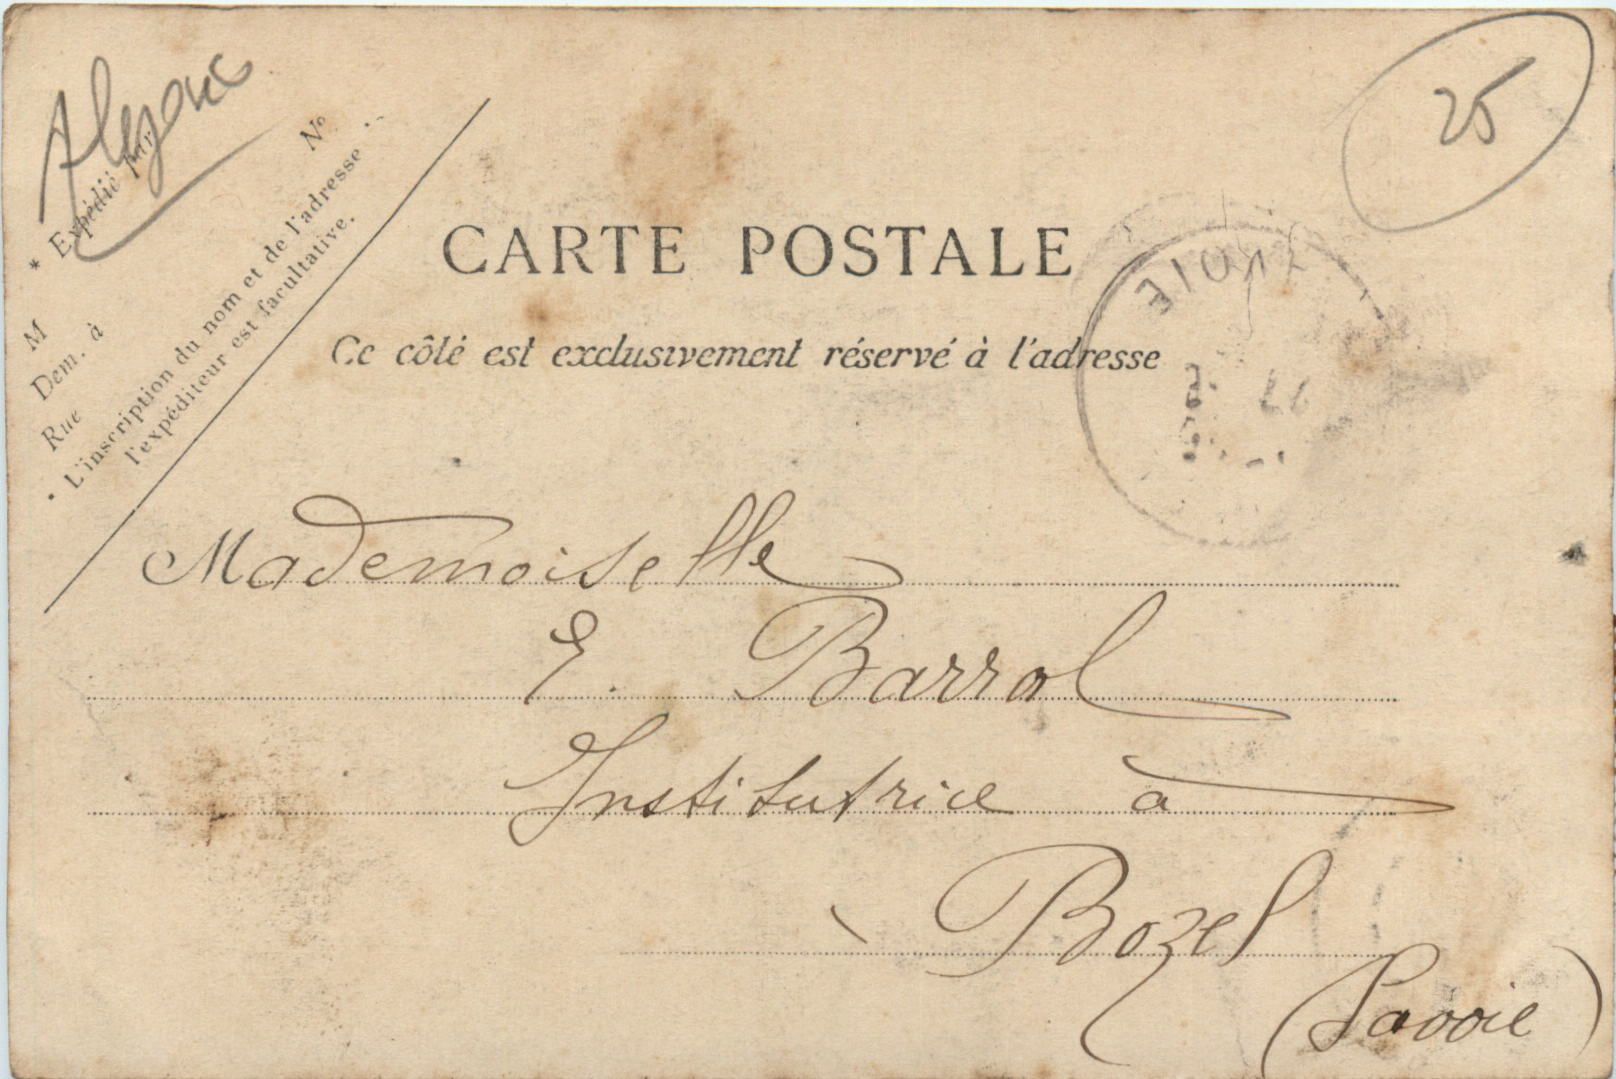 25
* Expédié par
Nº
M
Dem. à
Rue
• L'inscription du nom et de l'adresse
l'expéditeur est facultative.
CARTE POSTALE
Ce côté est exclusivement réservé à l'adresse
Mademoiselle
E. Barral
Institutrice à
Bozel
(Savoie)